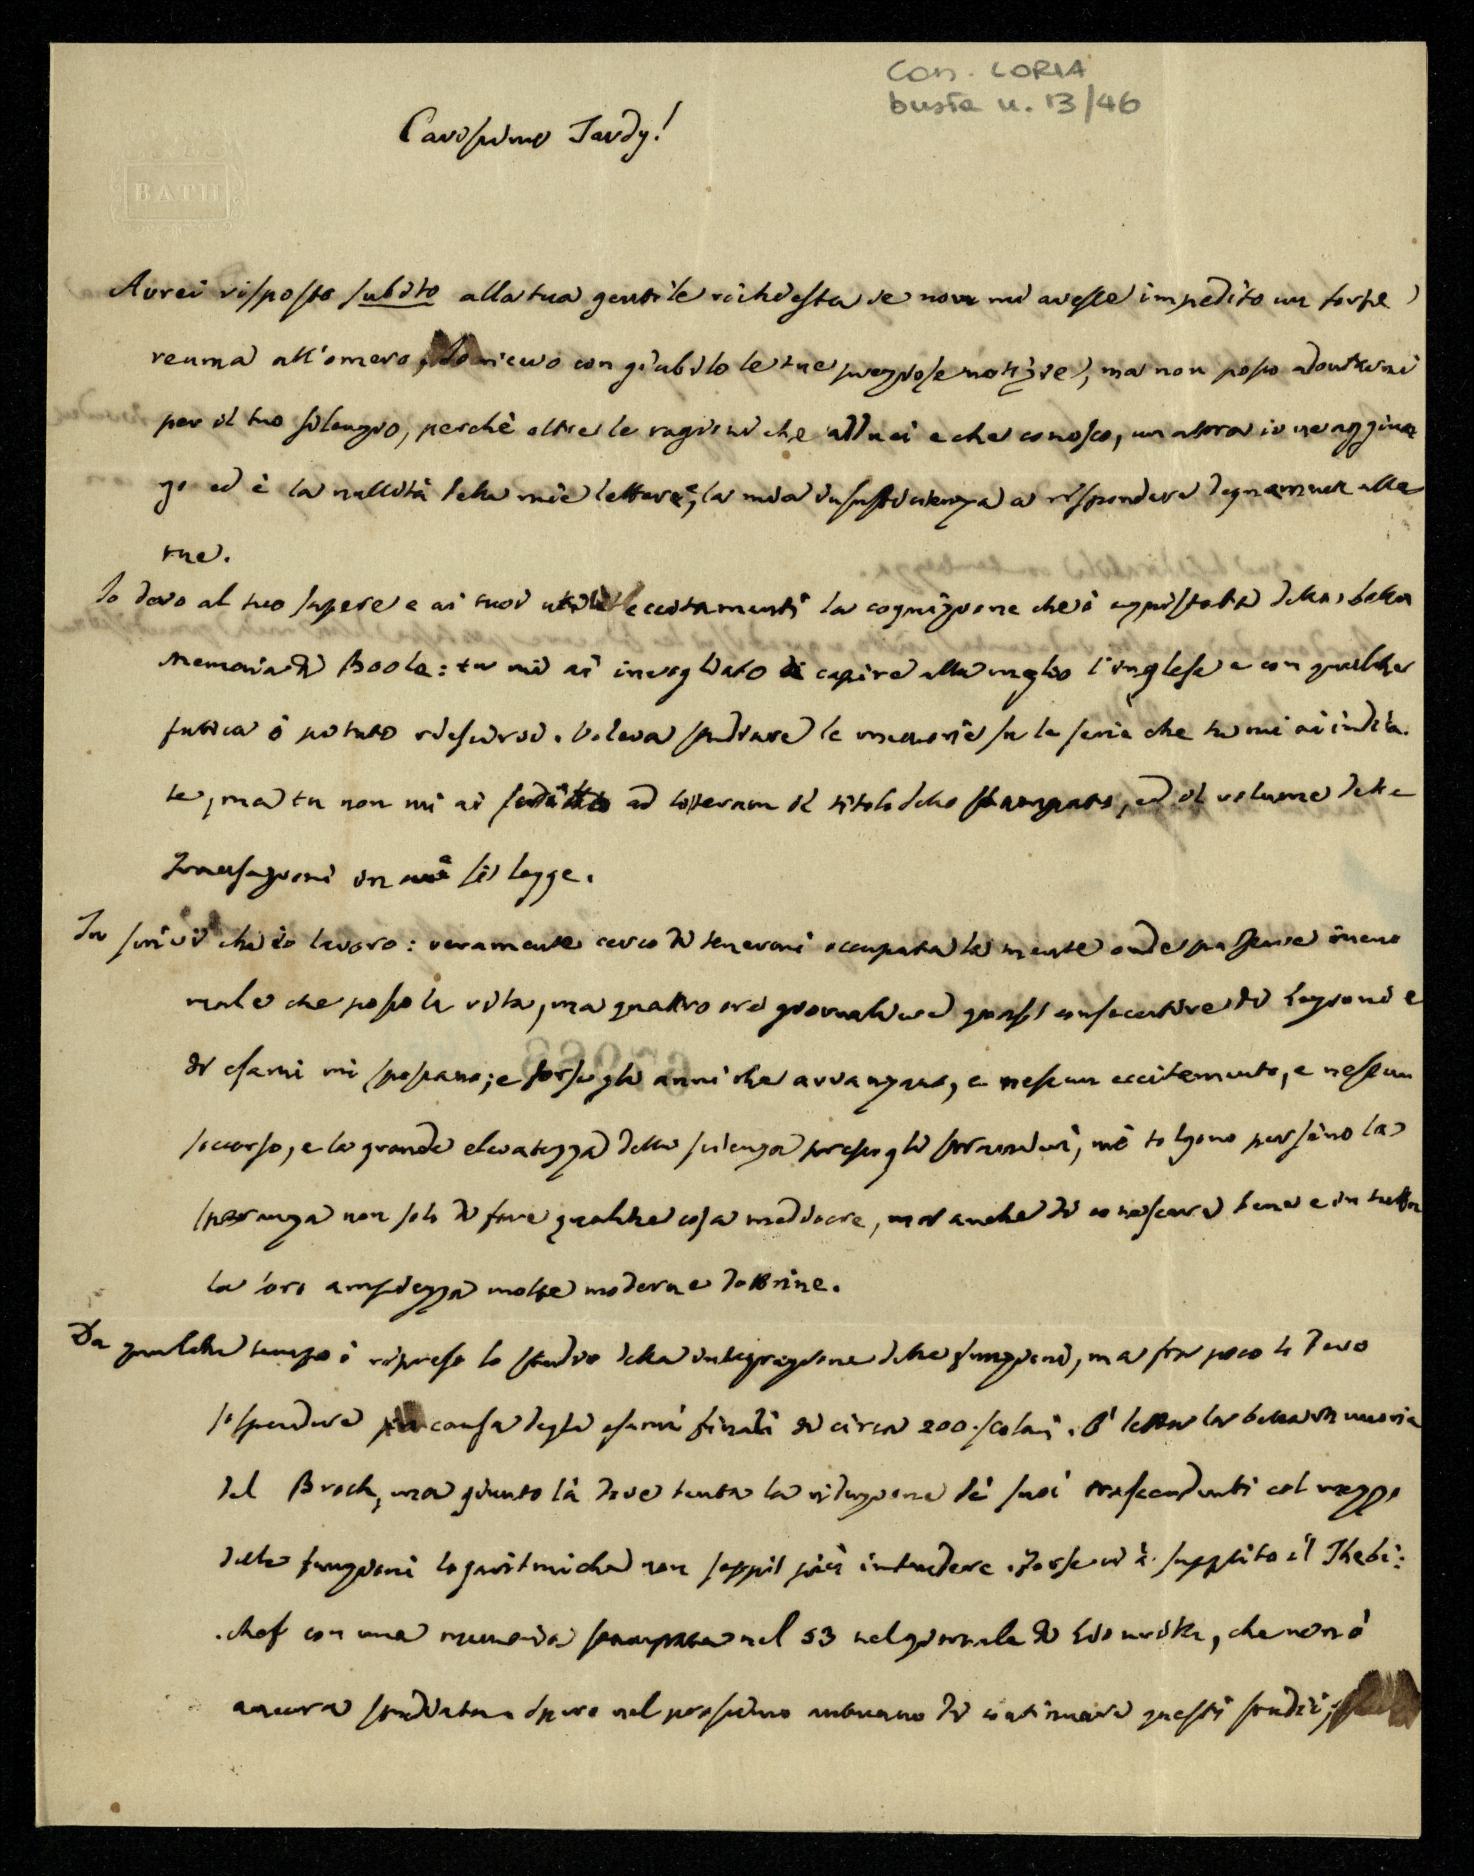 Con. LORIA
busta n. 13/46
Carissimo Tardy!
BATH
Avrei risposto subito alla tua gentile richiesta se non mi avesse impedito un forte
reuma all'omero, Io ricevo con giubilo le tue preziose notizie, ma non posso adontarmi
per il tuo silenzio, perchè oltre le ragioni che adduci e che conosco, un altra io ne aggiun
go ed è la nullità delle mie lettere, e la mia insufficienza a rispondere degnamente alle
tue.
Io devo al tuo sapere e ai tuoi eccitamenti la cognizione che ò acquistata della bella
Memoria di Boole: tu mi ai invogliato di capire alla meglio l'inglese e con qualche
fatica ò potuto riescirvi. Voleva studiare le memorie su le serie che tu mi ai indica
te, ma tu non mi ai ad litteram il titolo dello stampato, ed il volume delle
Transazioni in cui si legge.
Tu scrivi che io lavoro: veramente cerco di tenermi occupata la mente onde passare meno
male che posso la vita, ma quattro ore giornaliere quasi consecutive di Lezioni e
di esami mi spossano; e forse gli anni che avvanzano, e nessun eccitamento, e nessun
soccorso, e la grande elevatezza della scienza presso gli stranieri, mi tolgono persino la
speranza non solo di fare qualche cosa mediocre, ma anche di conoscere bene e in tutta
la loro ampiezza molte moderne dottrine.
Da qualche tempo ò ripreso lo studio della integrazione delle funzioni, ma fra poco lo devo
sospendere per causa degli esami finali di circa 200 scolari. O' letta la bella memoria
del Broch, ma giunto là dove tenta la riduzione de' suoi trascendenti col mezzo
delle funzioni logaritmiche non seppi più intendere. Forse vi à supplito il Thebi:
chef con una memoria stampata nel 53 nel giornale di Liouville, che non ò
ancora studiata. Spero nel prossimo autunno di continuare questi studii;